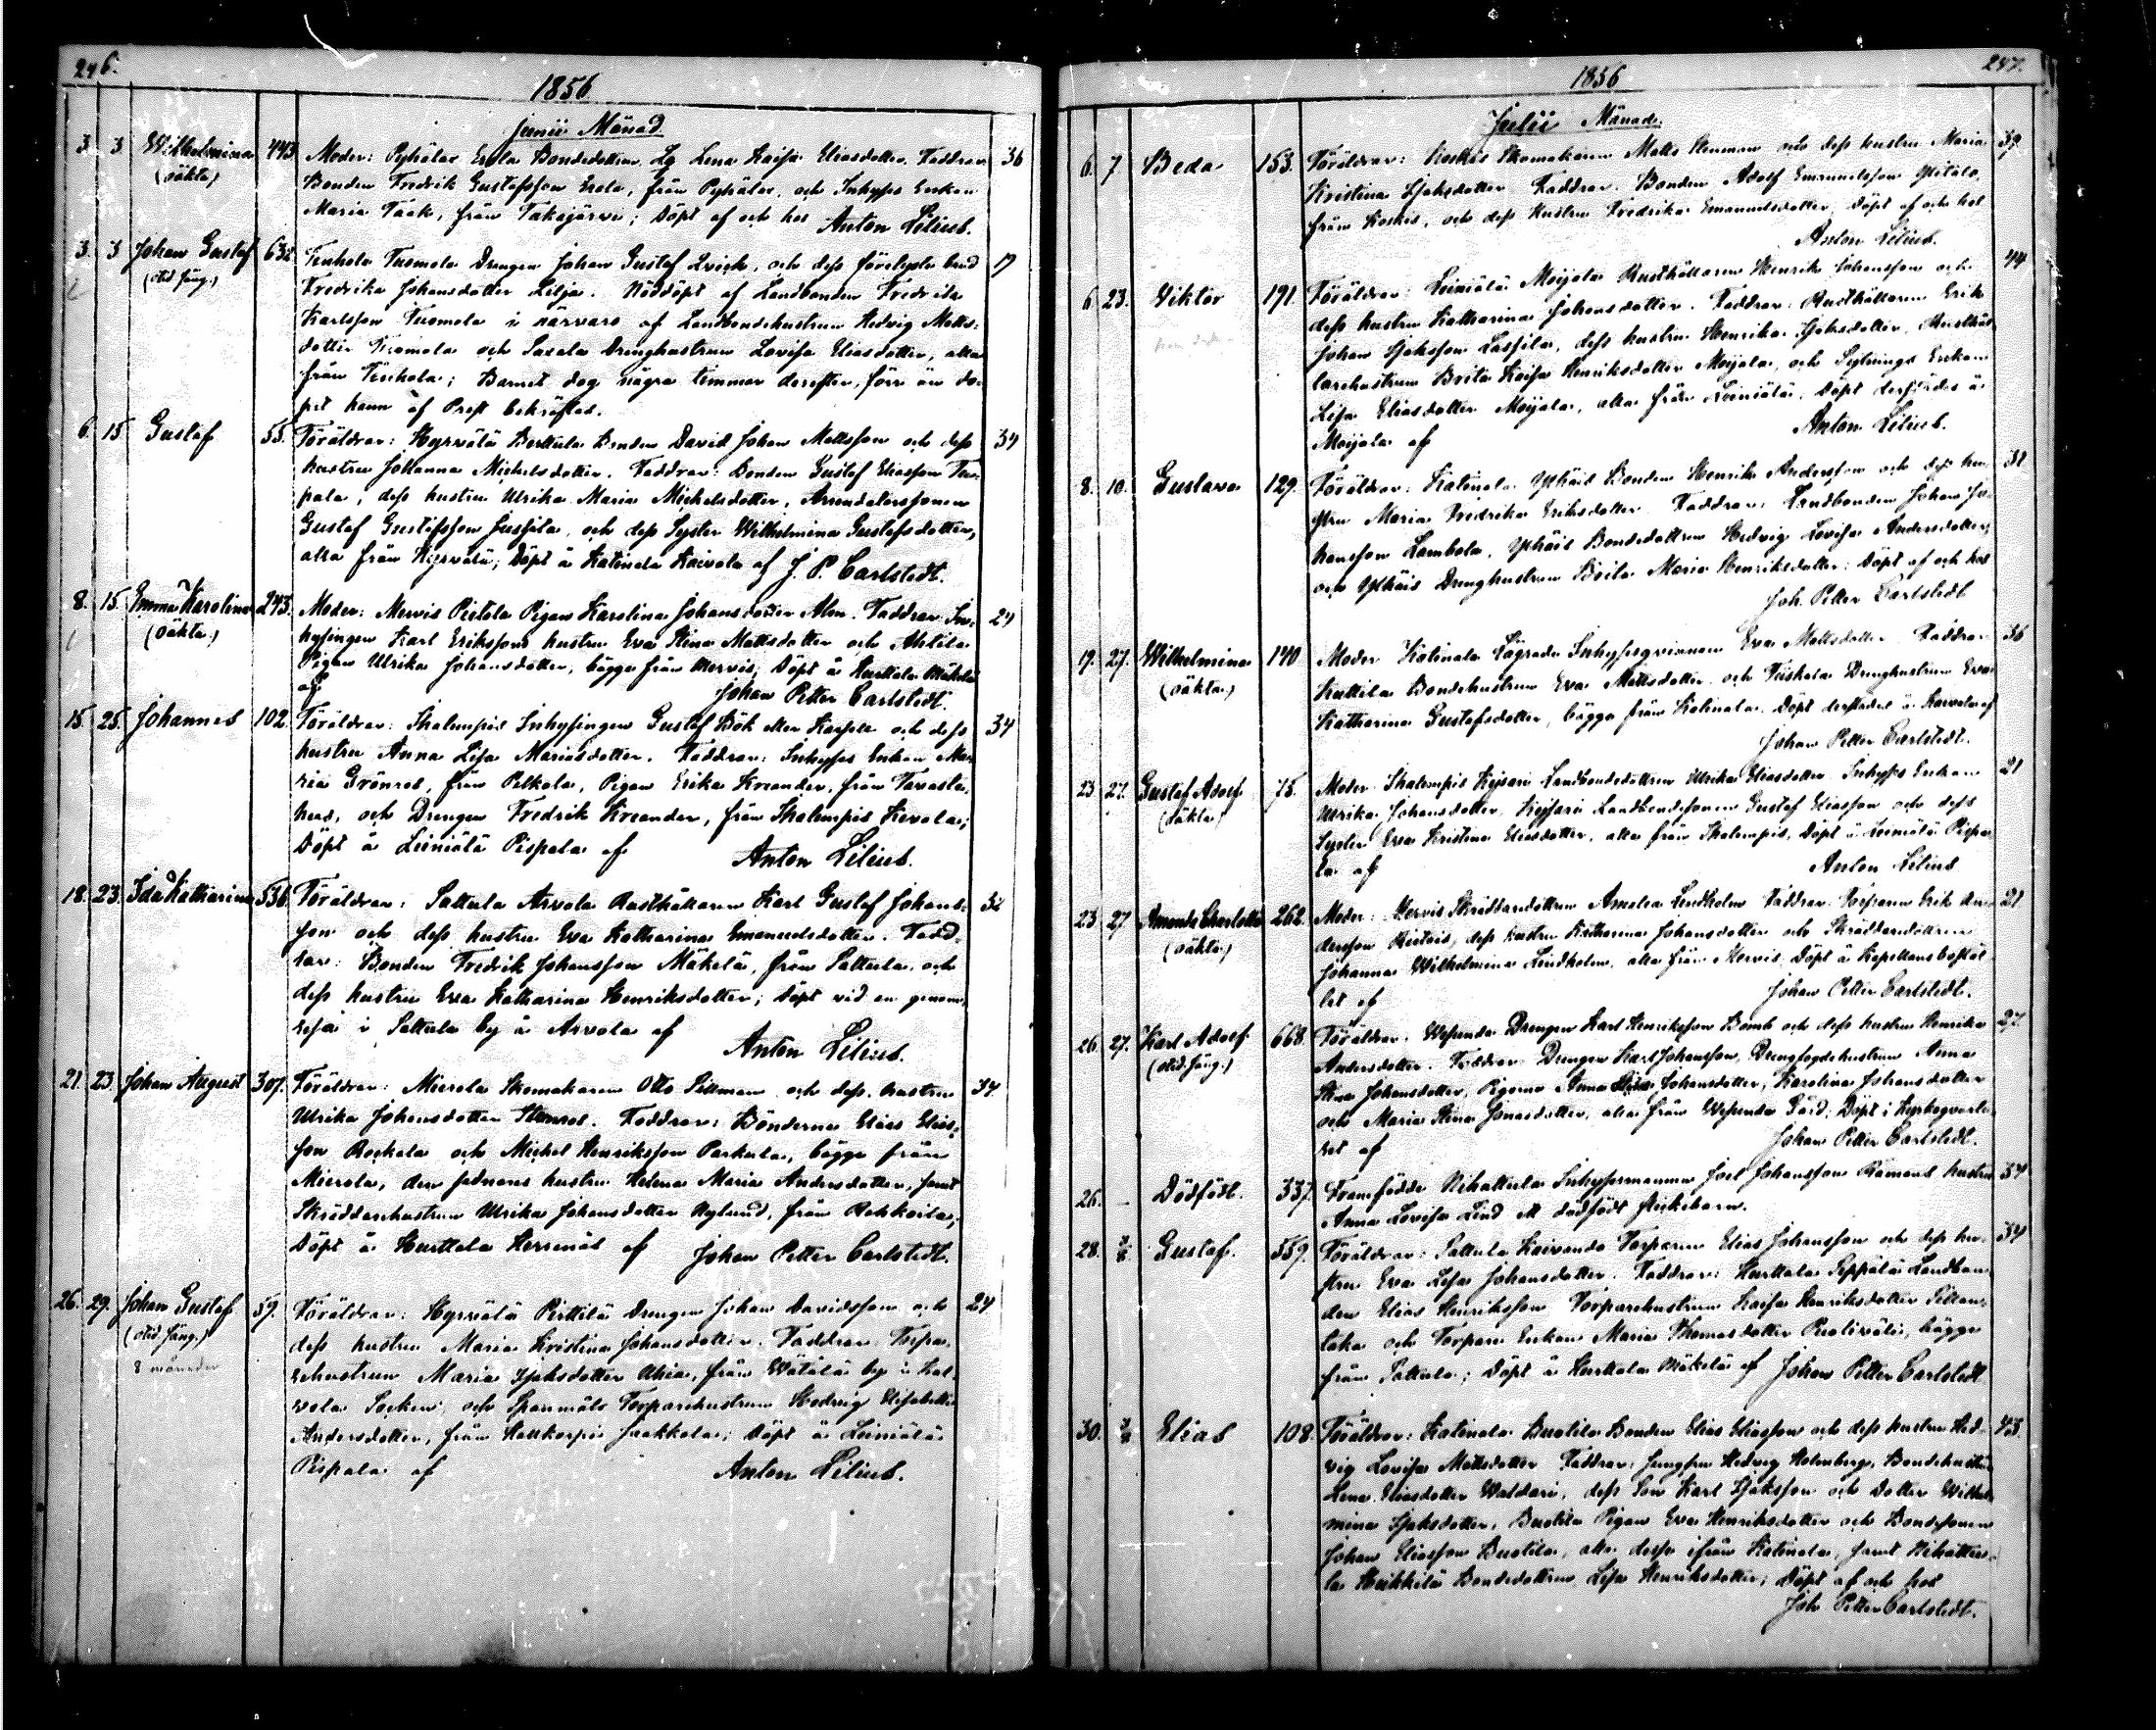 246.
1856
Junii Månad
3. 3 Wilhelmina 443. Moder: Pyhälax Erola Bondedottren Lg Lena Kaisa Eliasdotter. Faddrar 36
(oäkta) Bonden Fredrik Gustafsson Erola, från Pyhälax, och Inhyses Enkan
Maria Täck, från Takajärwi; Döpt af och hos Anton Lilius.
3. 3 Johan Gustaf 632. Tenhola Tuomola Drengen Johan Gustaf Qvick, och dess 19
(otid. säng.) Fredrika Johansdotter Lilja. Nöddöpt af Landbonden Fredrik
Karlsson Tuomola i närvaro af Landbondehustrun Hedvig Matts-
dotter Tuomola och Saxala Drenghustrun Lovisa Eliasdotter, alla
från Tenhola; Barnet dog några timmar derefter, förr än do-
pet hann af Prest bekräftas.
6. 15. Gustaf 55. Föräldrar: Hyrvälä Berttula Bonden David Johan Mattsson och dess 34
hustru Johanna Michelsdotter. Faddrar: Bonden Gustaf Eliasson Ta-
pala, dess hustru Ulrika Maria Michelsdotter, Arrendatorssonen
Gustaf Gustafsson Jussila, och dess Syster Wilhelmina Gustafsdotter,
alla från Hyrvälä; Döpt å Katinala Kaivola af J. P. Carlstedt.
8. 15. Emma Karolina 243. Moder: Mervis Pietola Pigan Karolina Johansdotter Alm. Faddrar: In- 24
(oäkta.) hysingen Karl Erikssons hustru Eva Stina Mattsdotter och Ahlila
Pigan Ulrika Johansdotter, bägge från Mervis; Döpt å Hurttala Mäkelä
af Johan Petter Carlstedt.
15. 25. Johannes 102. Föräldrar: Thalempis Inhysingen Gustaf Bök eller Kaspell och dess 34
hustru Anna Lisa Mariasdotter. Faddrar: Inhyses Enkan Ma-
ria Grönroos, från Pelkola, Pigan Erika Kreander, från Tavaste-
hus, och Drengen Fredrik Kreander, från Thalempis Kevola;
Döpt å Leiniälä Pispala af Anton Lilius.
18. 23. Ida Katharina 536. Föräldrar: Sattula Arvola Rusthållaren Karl Gustaf Johans- 32
son och dess hustru Eva Katharina Emanuelsdotter. Fadd-
rar: Bonden Fredrik Johansson Mäkelä, från Sattula, och
dess hustru Eva Katharina Henriksdotter; Döpt vid en genom-
resa i Sattula by å Arvola af Anton Lilius.
21. 23. Johan August 307. Föräldrar: Mierola Skomakaren Otto Sillman och dess hustru 34.
Ulrika Johansdotter Stenroos. Faddrar: Bönderna Elias Elias-
son Rockala och Michel Henriksson Parkula, bägge från
Mierola, den sednares hustru Helena Maria Andersdotter, samt
Skräddarehustrun Ulrika Johansdotter Nylund, från Rahkoila;
Döpt å Hurttala Herrnäs af Johan Petter Carlstedt.
26. 29. Johan Gustaf 59. Föräldrar: Hyrvälä Perttilä Drengen Johan Davidsson och 24
(otid. säng.) dess hustru Maria Kristina Johansdotter. Faddrar: Torpa-
8 månader rehustrun Maria Isaksdotter Ahia, från Wätälä by i Kal-
vola Socken, och Spanmäls Torparehustrun Hedvig Elisabeth
Andersdotter, från Hattkorpis Jaakkola; Döpt å Leiniälä
Pispala af Anton Lilius.
247.
1856
Julii Månad.
6. 7. Beda 153. Föräldrar: Koskis Skomakaren Matts Stenman och dess hustru Maria 39
Kristina Isaksdotter. Faddrar: Bonden Adolf Emanuelsson Ylitalo,
från Koskis, och dess hustru Fredrika Emanuelsdotter. Döpt af och hos
Anton Lilius.
6. 23. Viktor 191. Föräldrar: Leiniälä Moijala Rusthållaren Henrik Johansson och 44
dess hustru Katharina Johansdotter. Faddrar: Rusthållaren Erik
Johan Isaksson Lassila, dess hustru Henrika Isaksdotter, Rusthål-
larehustrun Brita Kaisa Henriksdotter Moijala, och Sytnings Enkan
Lisa Eliasdotter Moijala, alla från Leiniälä; Döpt derstädes å
Moijala af Anton Lilius.
8. 10. Gustava 129. Föräldrar: Katinala Yphäis Bonden Henrik Andersson och dess hu- 31
stru Maria Fredrika Eriksdotter. Faddrar: Landbonden Johan Jo-
hansson Lambola, Yphäis Bondedottren Hedvig Lovisa Andersdotter,
och Yphäis Drenghustrun Brita Maria Henriksdotter; Döpt af och hos
Joh. Petter Carlstedt
19. 27. Wilhelmina 140 Moder Katinala Inhysesqvinnan Eva Mattsdotter Faddrar 36
(oäkta.) Kuttila Bondehustrun Eva Mattsdotter och Tuiskola Drenghustrun Eva
Katharina Gustafsdotter, bägge från Katinala. Döpt derstädes å Kaivola af
Johan Petter Carlstedt.
23 27. Gustaf Adolf 75. Moder: Thalempis Keisari Landbondedottren Ulrika Eliasdotter Inhyses Enkan 21
(oäkta) Ulrika Johansdotter, Keisari Landbondesonen Gustaf Eliasson och dess
Syster Eva Kristina Eliasdotter, alla från Thalempis. Döpt å Leiniälä Pispa-
la af Anton Lilius
23 27 Amanda Charlotta 262. Moder: Mervis Skräddaredottren Amalia Lindholm Faddrar Torparen Erik An- 21
(oäkta.) dersson, dess hustru Katharina Johansdotter och Skräddaredottren
Johanna Wilhelmina Lindholm, alla från Mervis. Döpt å Kapellansbostäl-
let af Johan Petter Carlstedt.
26. 27. Karl Adolf 668 Föräldrar: Wesunda Drengen Karl Henriksson Bomb och dess hustru Henrika 27.
(otid. säng.) Andersdotter. Faddrar: Drengen Karl Johansson, Drengfogdehustrun Anna
Stina Johansdotter, Pigorna Anna Lisa Johansdotter, Karolina Johansdotter
och Maria Stina Jonasdotter, alla från Wesunda Gård; Döpt i kyrkoqvarte-
ret af Johan Petter Carlstedt.
26. – Dödfödt. 337. Framfödde Nihattula Inhysesmannen Joel Johansson Ramans hustru 34
Anna Lovisa Lind ett dödfödt flickebarn.
28. 3/8 Gustaf. 559. Föräldrar: Sattula Kaivando Torparen Elias Johansson och dess hu- 34
stru Eva Lisa Johansdotter. Faddrar: Hurttala Seppälä Landbon-
den Elias Henriksson Torparehustrun Kaisa Henriksdotter Sillan-
taka och Torpare Enkan Maria Thomasdotter Puolivälis, bägge
från Sattula; Döpt å Hurttala Mäkelä af Johan Petter Carlstedt
30. 3/8 Elias 108. Föräldrar: Katinala Bustila Bonden Elias Eliasson och dess hustru Hed- 43.
vig Lovisa Mattsdotter Faddrar: Jungfru Hedvig Holmberg, Bondehustrun
Lena Eliasdotter Waldari, dess Son Karl Isaksson och Dotter Wilhel-
mina Isaksdotter, Bustila Pigan Eva Henriksdotter och Bondesonen
Johan Eliasson Bustila, alla desse ifrån Katinala, samt Nihattu-
la Heikkilä Bondedottren Lisa Henriksdotter; Döpt af och hos
Joh. Petter Carlstedt.